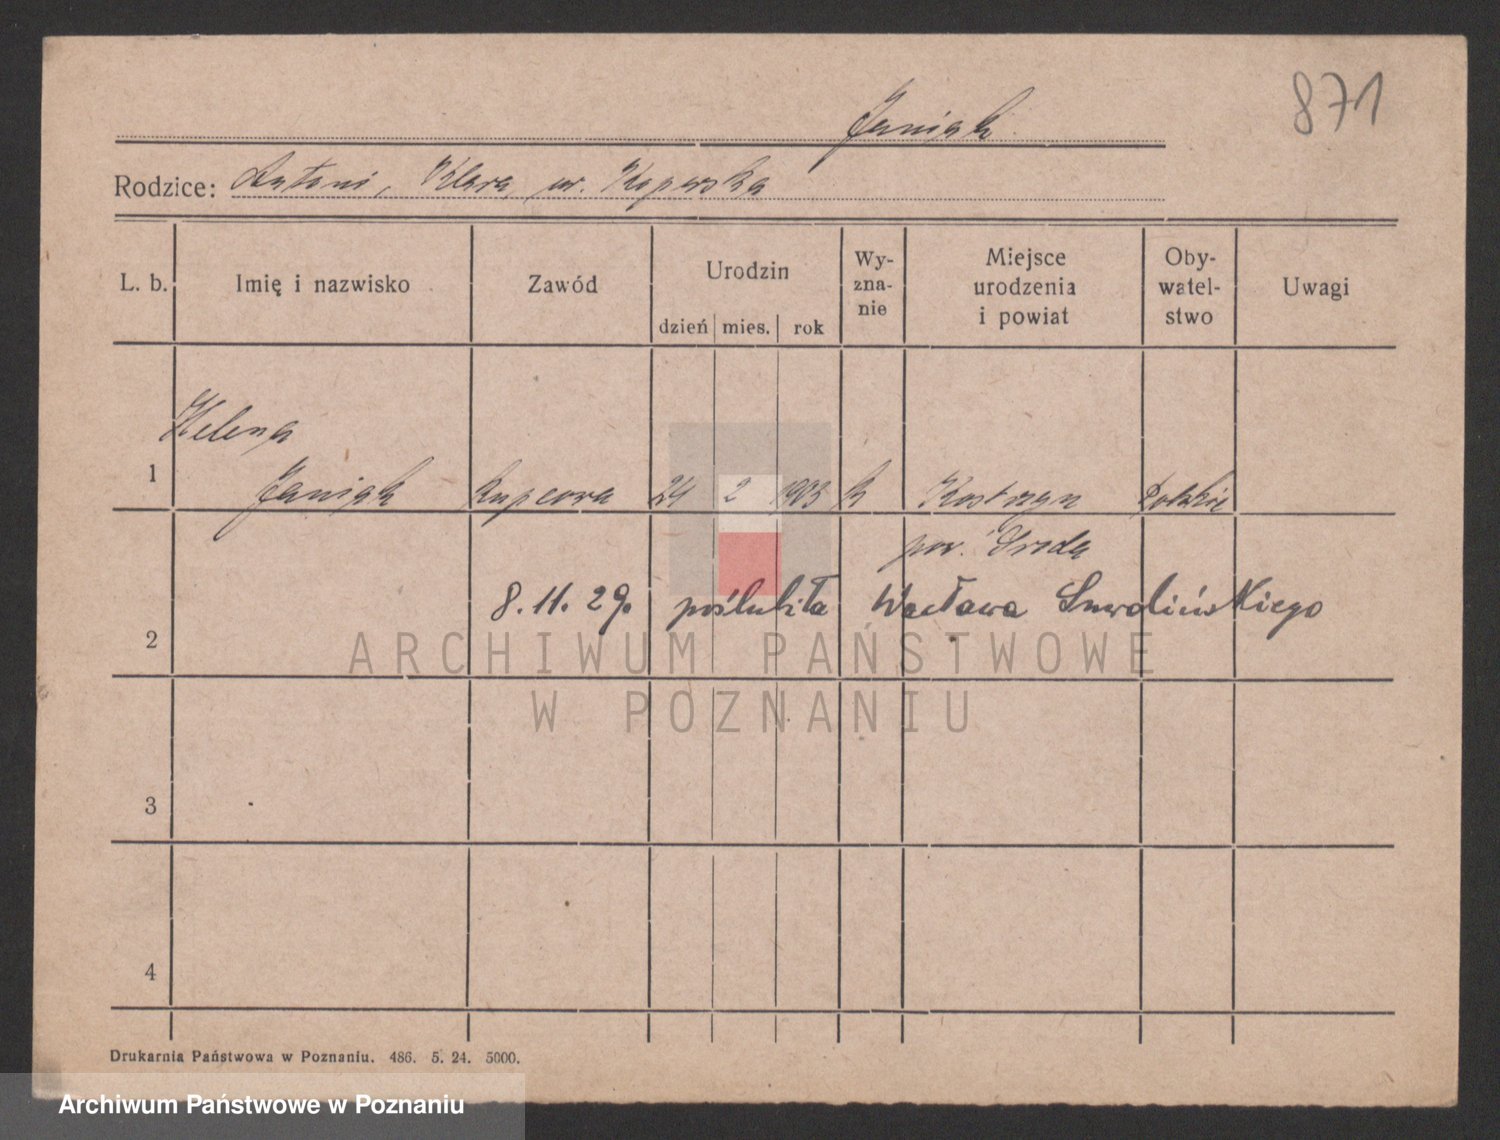 871
Janiak
Rodzice: Antoni, Klara ur. Koperska
L. b. Imię i nazwisko Zawód Urodzin dzień mies. rok Wy-zna-nie Miejsce urodzenia i powiat Oby-watel-stwo Uwagi
Helena
1 Janiak kupcowa 24 2 1903 k Kostrzyn Polskie
pow. Środa
8. 11. 29. poślubiła Wacława Smolińskiego
2
ARCHIWUM PAŃSTWOWE
W POZNANIU
3
4
Drukarnia Państwowa w Poznaniu. 486. 5. 24. 5000.
Archiwum Państwowe w Poznaniu